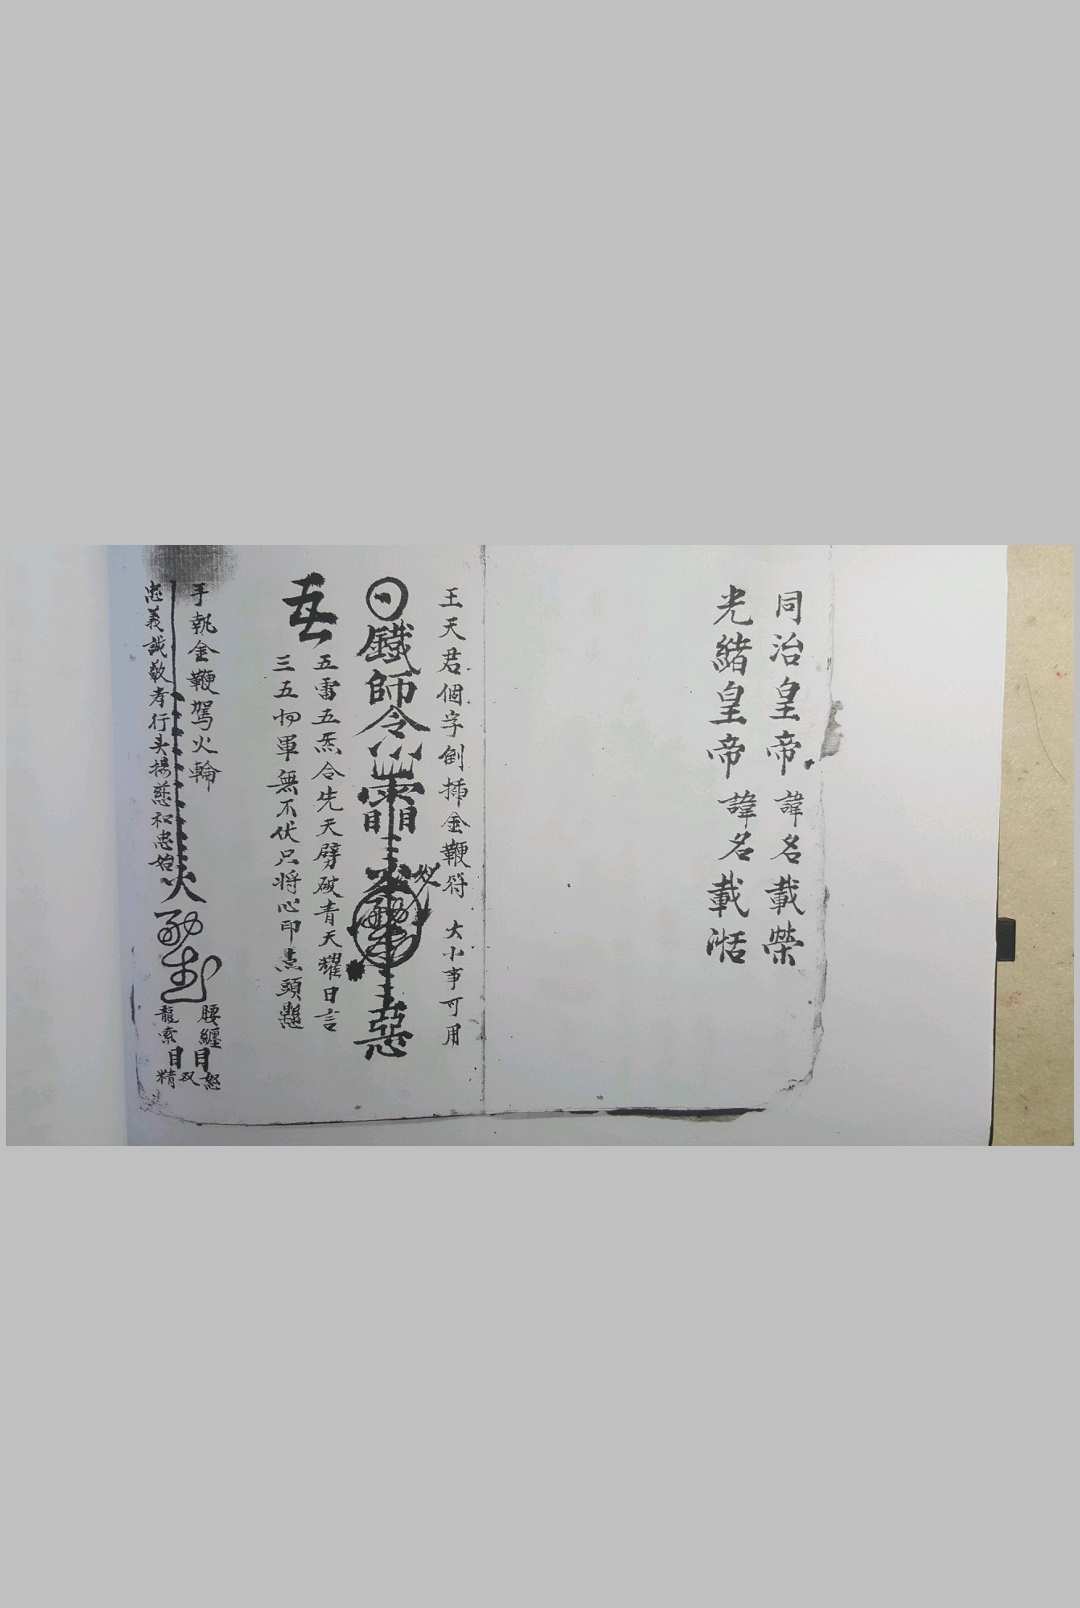 同治皇帝諱名載榮
光緒皇帝諱名載湉
王天君個字倒插金鞭符 大小事可用
鐵師令
惡
五雷五炁令先天劈破青天耀日言
三五扣軍無不伏只将心印点頭懸
手執金鞭駕火輪
忠義誠敬孝行头揚慈和忠始
火
腰纏
龍索
目目
怒
双
精